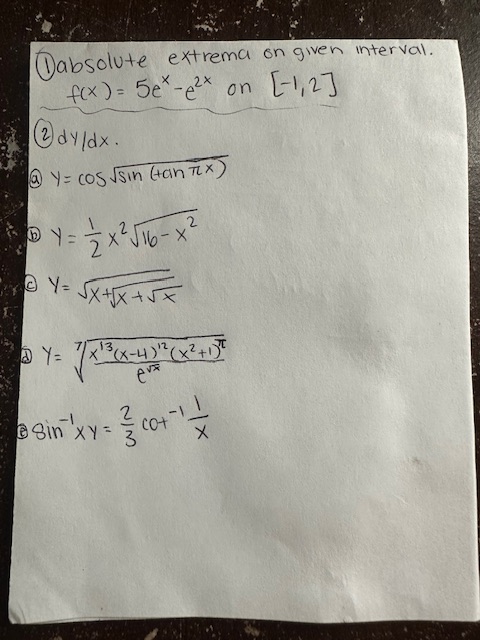 ① absolute extrema on given interval.
f(x) = 5eˣ - e²ˣ on [-1,2]
② dy/dx.
ⓐ y = cos √(sin (tan πx))
ⓑ y = 1/2 x² √(16 - x²)
ⓒ y = √(x + √(x + √x))
ⓓ y = ⁷√(x¹³(x-4)¹²(x²+1)^π / e^√x)
ⓔ sin⁻¹ xy = 2/3 cot⁻¹ 1/x